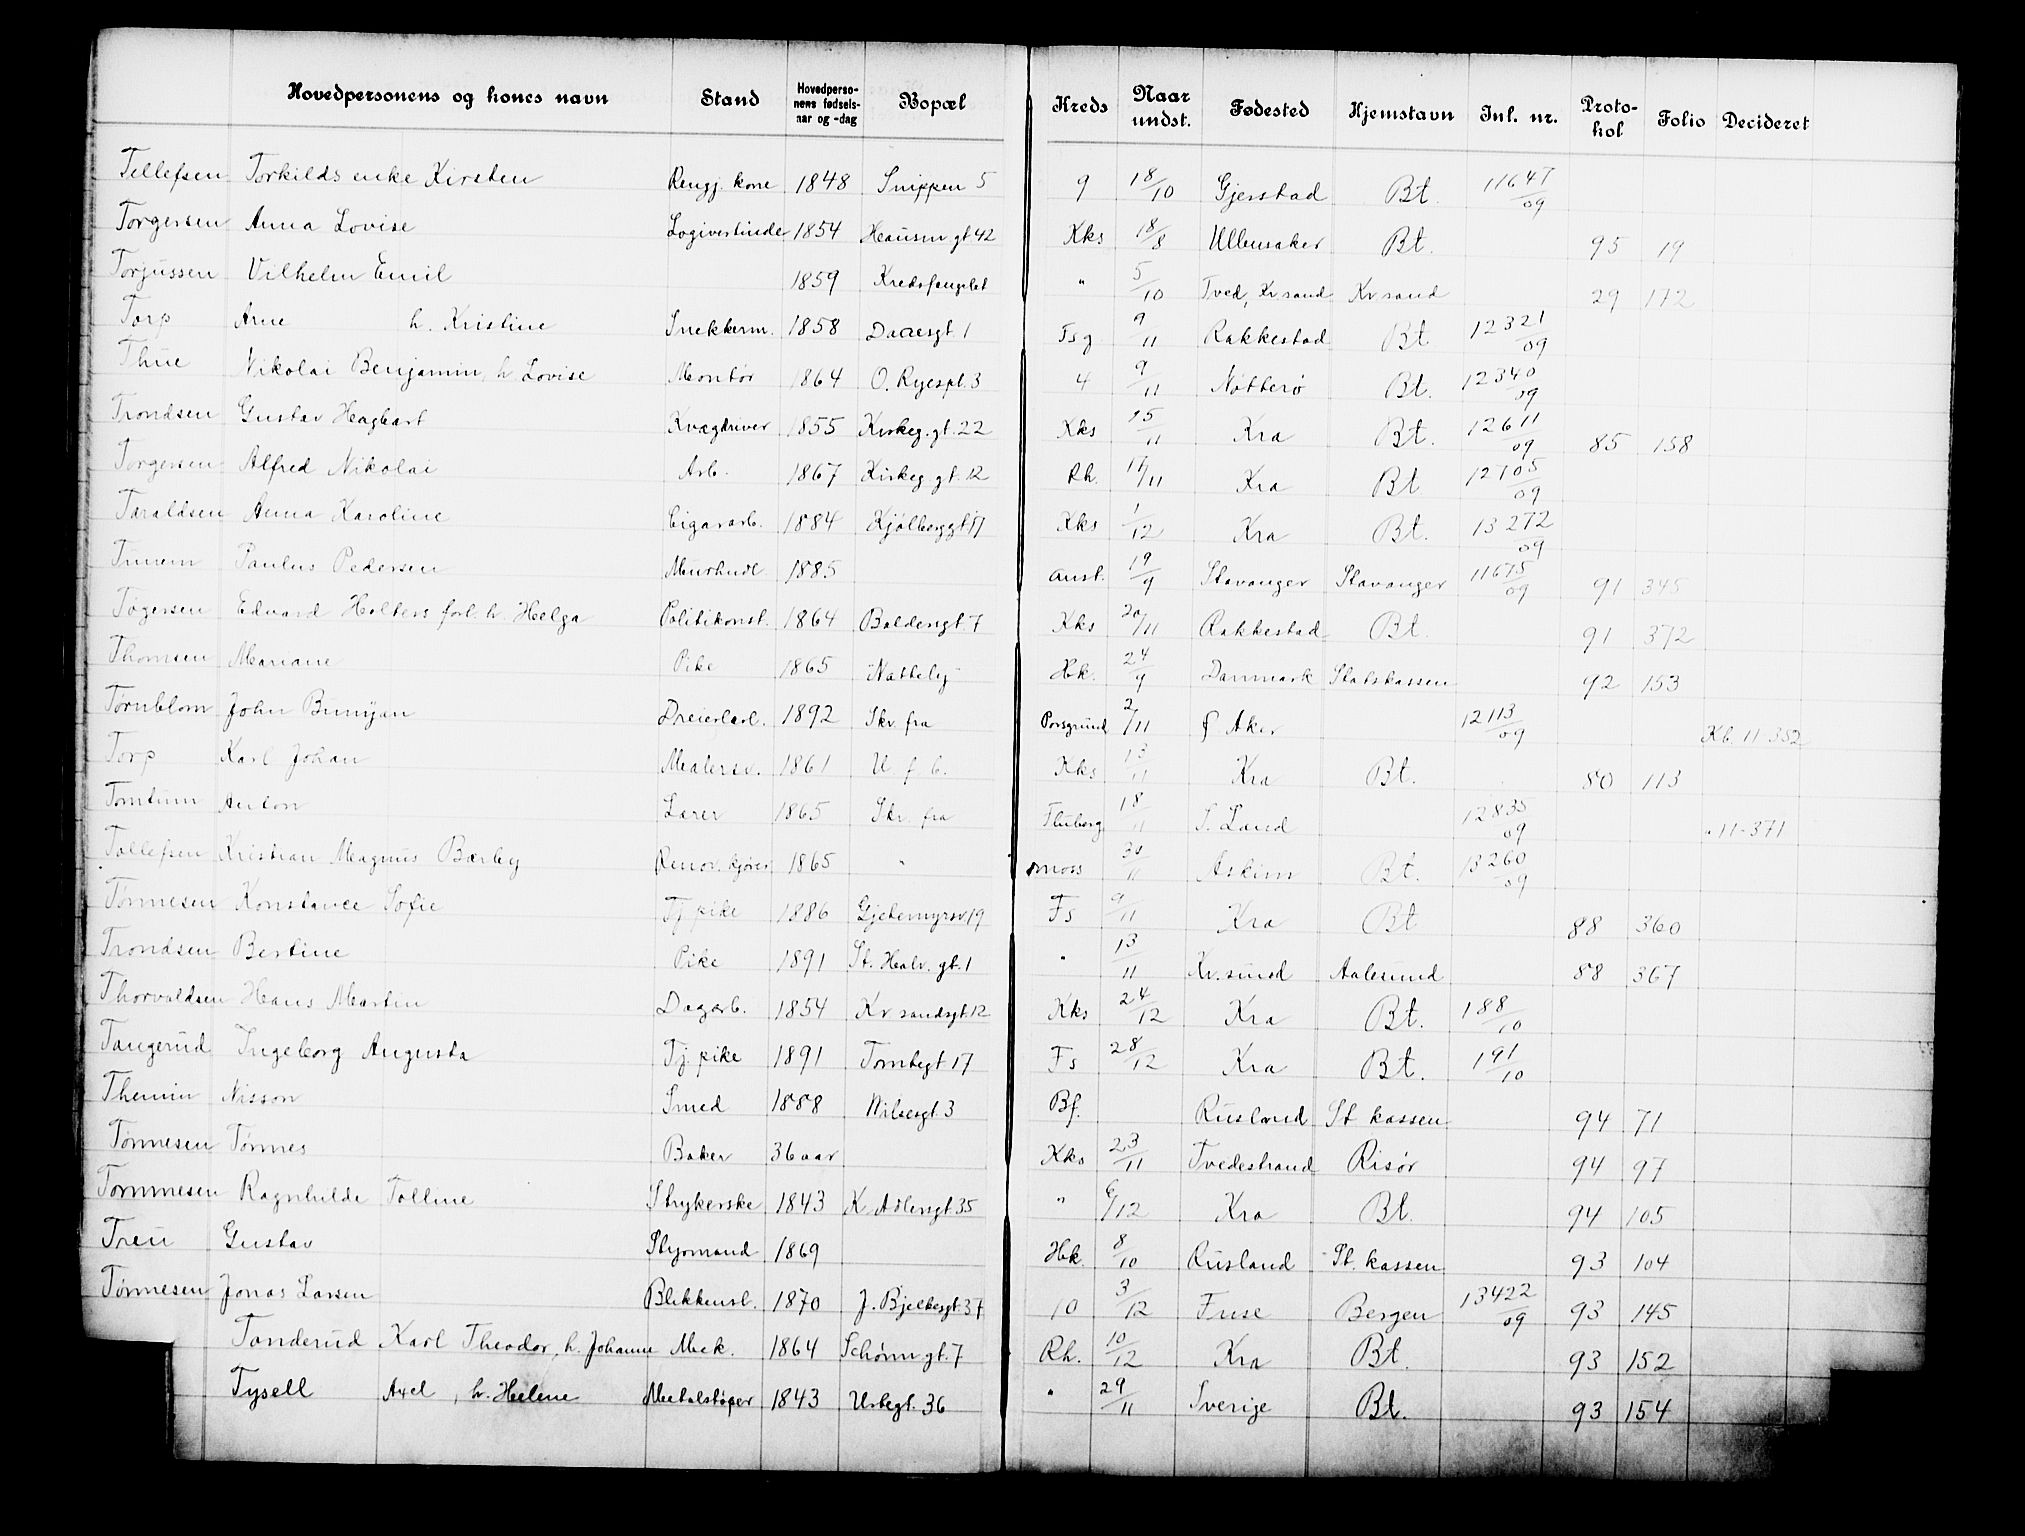 Hovedpersonens og hones navn Stand Hovedpersonens fødselsaar og -dag Bopæl Kreds Naar undst. Fødested Hjemstavn Inl. nr. Protokol Folio Decideret
Tellefsen Torkilds enke Kirsten Rengj. kone 1848 Snippen 5 9 18/10 Gjerstad Bt. 11647/09
Torgersen Anna Lovise Logivertinde 1854 Hausm gt 42 Kks 18/8 Ullensaker Bt. 95 19
Torjussen Vilhelm Emil 1859 Kredsfængslet " 5/10 Tved, Kr.sand Kr sand 29 172
Torp Arne h. Kristine Snekkerm. 1858 Daaesgt. 1 Fsg 9/11 Rakkestad Bt 12321/09
Thue Nikolai Benjamin, h Lovise Montør 1864 O. Ryespl. 3 4 9/11 Nøtterø Bt. 12340/09
Trondsen Gustav Hagbart Kvægdriver 1855 Kirkeg. gt. 22 Kks 15/11 Kra Bt. 12611/09 85 158
Torgersen Alfred Nikolai Arb. 1867 Kirkeg gt. 12 Rh. 17/11 Kra Bt 12705/09
Taraldsen Anna Karoline Cigararb. 1884 Kjølberggt. 17 Kks 1/12 Kra Bt. 13272/09
Timem Paulus Pedersen Murhndl 1885 Aust. 19/9 Stavanger Stavanger 11675/09 91 345
Tøgersen Edvard Holters forl. h. Helga Politikonst. 1864 Baldersgt. 7 Kks 20/11 Rakkestad Bt. 91 372
Thomsen Mariane Pike 1865 "Nattely" Hk. 24/9 Danmark Statskassen 92 153
Tørnblom John Bunyan Dreierlærl. 1892 Skr. fra Porsgrund 2/11 f. Aker 12113/09 Kb. 11-352
Torp Karl Johan Malersv. 1861 U f b. Kks 13/11 Kra Bt. 80 113
Tomtum Anton Lærer 1865 Skr. fra Fluberg 18/11 S. Land 12835/09 " 11-371
Tollefsen Kristian Magnus Bærby Renov. kjører 1865 " Moss 30/11 Askim Bt. 13260/09
Tønnesen Konstance Sofie Tj pike 1886 Gjetemyrsv 19 Fs 9/11 Kra Bt 88 360
Trondsen Bertine Pike 1891 St. Halv. gt. 1 " 13/11 Kr. sund Aalesund 88 367
Thorvaldsen Hans Martin Dagarb. 1854 Kr sandsgt. 12 Kks 24/12 Kra Bt. 188/10
Tangerud Ingeborg Augusta Tj. pike 1891 Tomtegt 17 Fs 28/12 Kra Bt. 191/10
Themin Nisson Smed 1888 Nilsesgt. 3 Bf. Rusland St kassen 94 71
Tønnesen Tønnes Baker 36 aar Kks 23/11 Tvedestrand Risør 94 97
Tommesen Ragnhilde Talline Strykerske 1843 K. Adlersgt. 35 " 6/12 Kra Bt. 94 105
Treu Gustav Styrmand 1869 Hk. 8/10 Rusland St. kassen 93 104
Tønnesen Jonas Larsen Blikkensl. 1870 J. Bjelkesgt. 37 10 3/12 Fuse Bergen 13422/09 93 145
Tanderud Karl Theodor, h. Johanne Mek. 1864 Schønn gt. 7 Rh. 10/12 Kra Bt. 93 152
Tysell Axel, h. Helene Metalstøper 1843 Urtegt. 36 " 29/11 Sverige Bt. 93 154